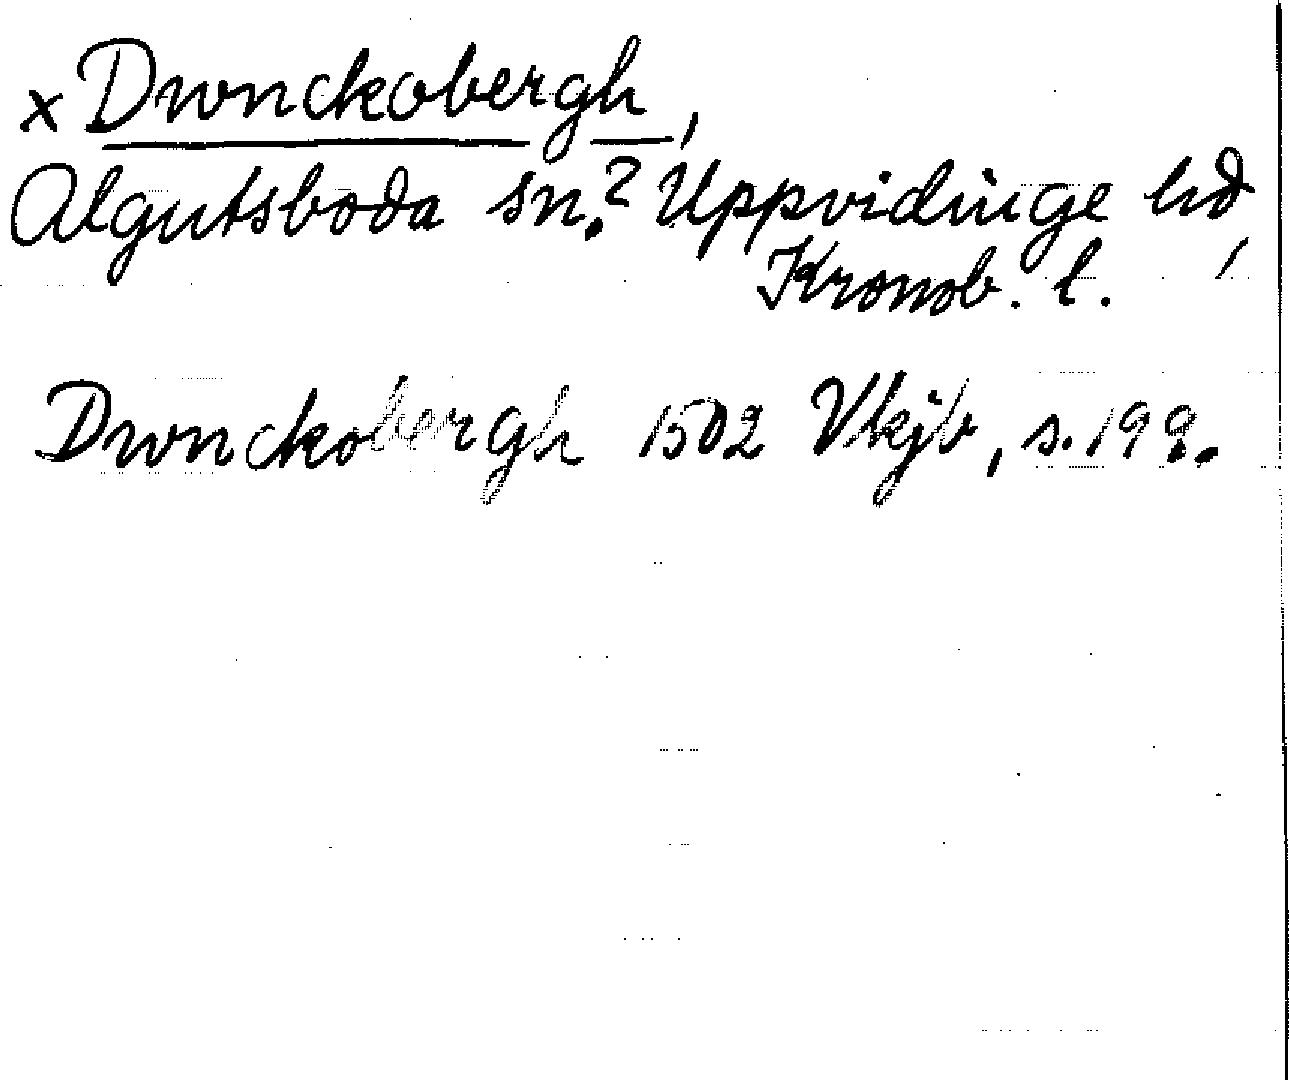 x Dwnckobergh,
Algutsboda sn.? Uppvidinge hd,
Kronob. l.
Dwnckobergh 1502 Vkjb, s. 199.